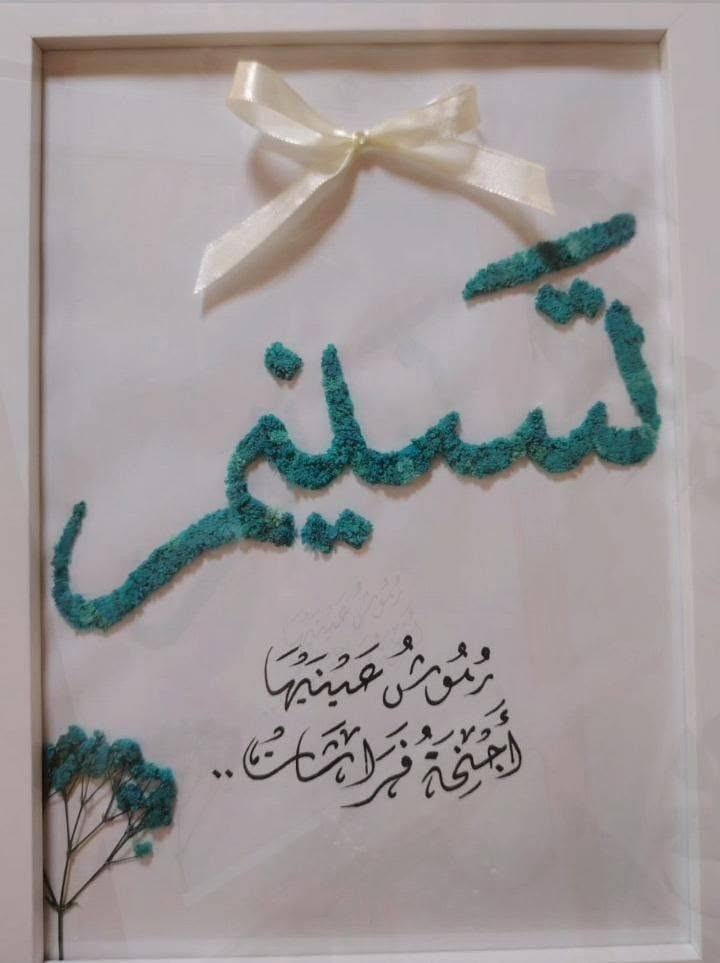 تسنيم
رُمُوشُ عَيْنَيْهَا
أَجْنِحَةُ فَرَاشَاتُ ..